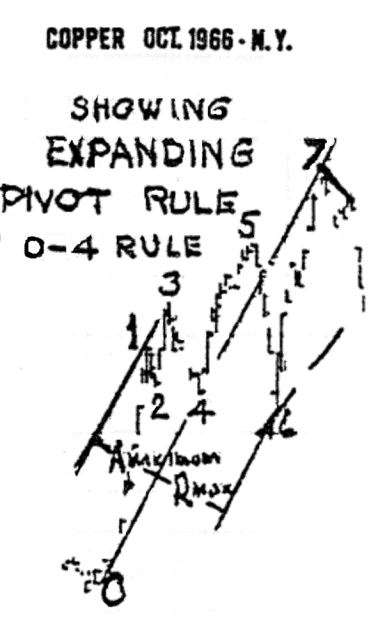 COPPER OCT. 1966 - N.Y.
SHOWING
EXPANDING
PIVOT RULE
0-4 RULE
7
5
3
1
2
4
6
A minimum
R max
0